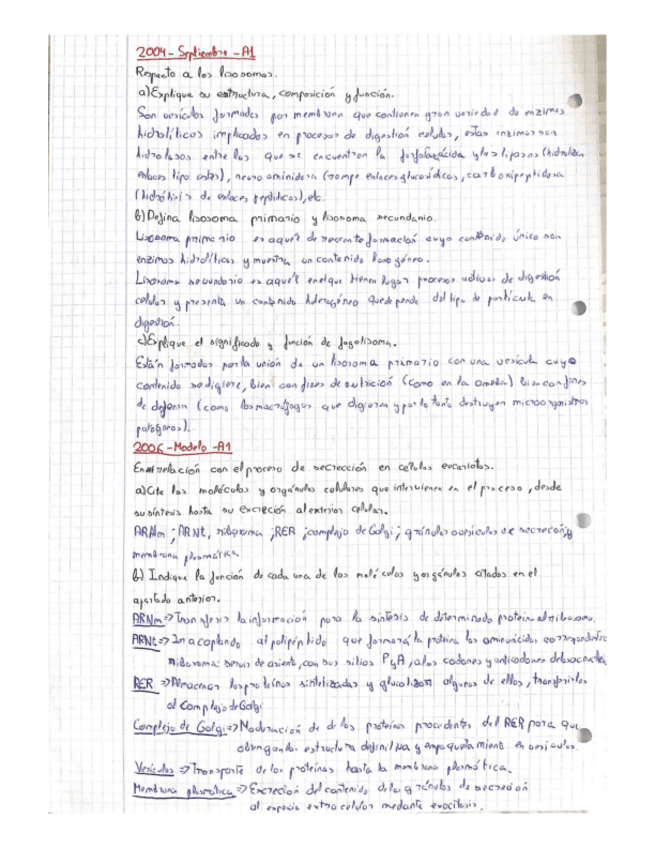 2004 - Septiembre - A1
Respecto a los lisosomas.
a) Explique su estructura, composición y función.
Son vesículas formadas por membrana que contienen gran variedad de enzimas
hidrolíticos implicados en procesos de digestión celular, estas enzimas son
hidrolasas entre las que se encuentran la fosfatasa ácida y las lipasas (hidrolizan
enlaces tipo ester), neuroaminidasa (rompe enlaces glucosídicos, carboxipeptidasa
(hidrólisis de enlaces peptídicos), etc.
b) Defina lisosoma primario y lisosoma secundario.
Lisosoma primario es aquél de reciente formación cuyo contenido único son
enzimas hidrolíticas y muestra un contenido homogéneo.
Lisosoma secundario es aquél en el que tienen lugar procesos activos de digestión
celular y presenta un contenido heterogéneo que depende del tipo de partícula en
digestión.
c) Explique el significado y función de fagolisoma.
Están formados por la unión de un lisosoma primario con una vesícula cuyo
contenido se digiere, bien con fines de nutrición (como en la ameba) bien con fines
de defensa (como los macrófagos que digieren y por lo tanto destruyen microorganismos
patógenos).
2006 - Modelo - A1
En relación con el proceso de secrección en células eucariotas.
a) Cite las moléculas y orgánulos celulares que intervienen en el proceso, desde
su síntesis hasta su excreción al exterior celular.
ARNm ; ARNt, ribosoma ; RER ; complejo de Golgi ; gránulos o vesículas de secreción y
membrana plasmática
b) Indique la función de cada una de las moléculas y orgánulos citados en el
apartado anterior.
ARNm => Transferir la información para la síntesis de determinada proteína al ribosoma.
ARNt => Ir acoplando al polipéptido que formará la proteína los aminoácidos correspondientes
Ribosoma: servir de asiento, con sus sitios P y A, a los codones y anticodones
RER => Almacenar las proteínas sintetizadas y glucolizar algunas de ellas, transferirlas
al Complejo de Golgi
Complejo de Golgi => Maduración de las proteínas procedentes del RER para que
obtengan la estructura definitiva y empaquetamiento en vesículas.
Vesículas => Transporte de las proteínas hasta la membrana plasmática.
Membrana plasmática => Excreción del contenido de los gránulos de secreción
al espacio extracelular mediante exocitosis.